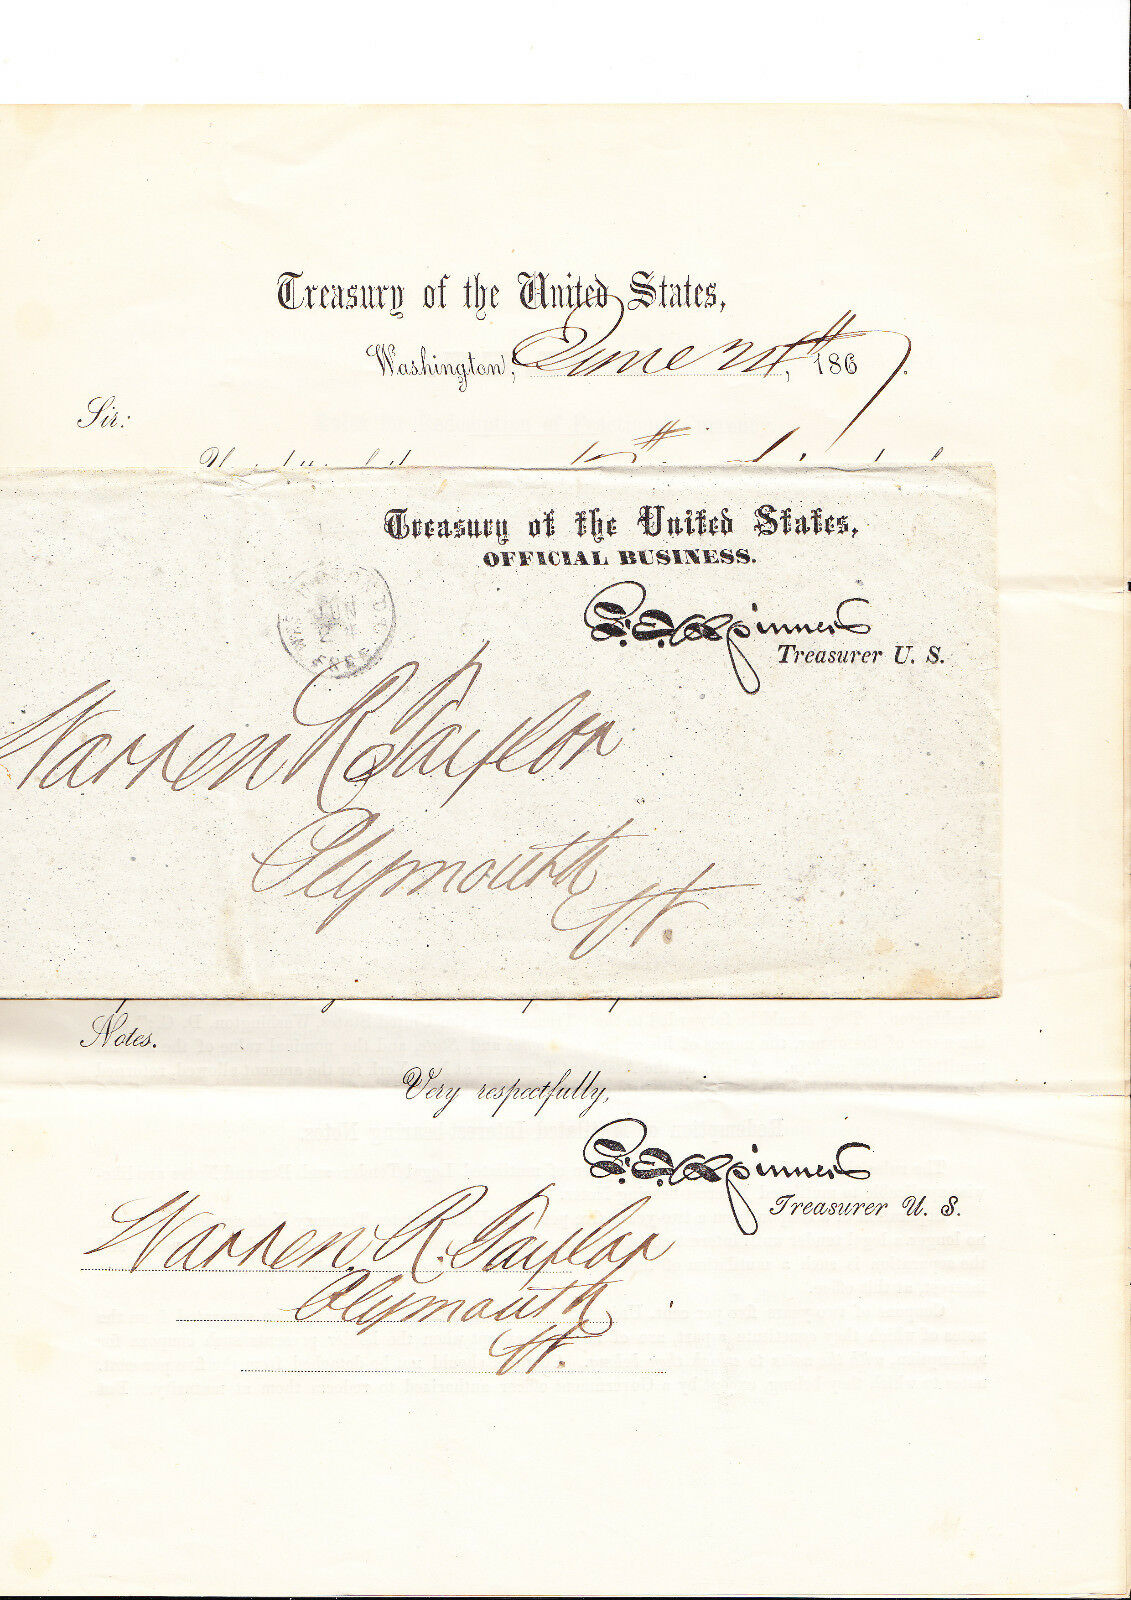 Treasury of the United States,
Washington, June 24th, 1867.
Sir:
Treasury of the United States,
OFFICIAL BUSINESS.
JUN
FREE
F. E. Spinner
Treasurer U. S.
Warren R. Taylor
Plymouth
Vt.
Notes.
Very respectfully,
F. E. Spinner
Treasurer U. S.
Warren R. Taylor
Plymouth
Vt.